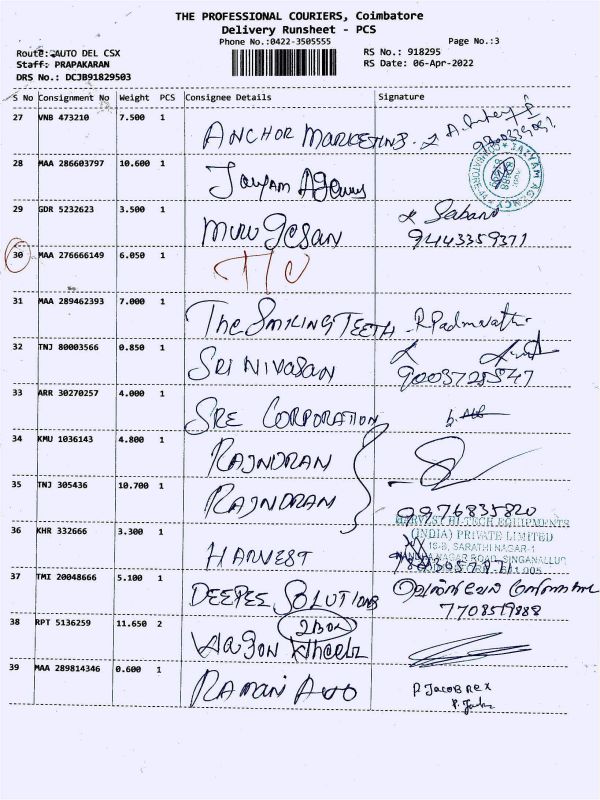 THE PROFESSIONAL COURIERS, Coimbatore
Delivery Runsheet - PCS
Phone No.:0422-3505555
Page No.:3
Route: AUTO DEL CSX
RS No.: 918295
Staff: PRAPAKARAN
RS Date: 06-Apr-2022
DRS No.: DCJB91829503
S No Consignment No Weight PCS Consignee Details Signature
27 VNB 473210 7.500 1 ANCHOR MARKETING
28 MAA 286603797 10.600 1
SATYAM AGENCY
29 GDR 5232623 3.500 1 MURUGESAN
9443359371
30 MAA 276666149 6.050 1
31 MAA 289462393 7.000 1 The SMILING TEETH R. Padmavathi
32 TNJ 80003566 0.850 1 SRINIVASAN
33 ARR 30270257 4.000 1 SRE CORPORATION
34 KMU 1036143 4.800 1 RAJNDRAN
35 TNJ 305436 10.700 1 RAJNDRAN
9976835820
HARVEST HI-TECH EQUIPMENTS
(INDIA) PRIVATE LIMITED
16-B, SARATHI NAGAR-1
NAGAR ROAD, SINGANALLUR
36 KHR 332666 3.300 1 HARVEST
37 TMI 20048666 5.100 1 DEEPEE SOLUTIONS
7708519888
38 RPT 5136259 11.650 2 2 Box
Wagon Wheels
39 MAA 289814346 0.600 1 RAMANI P. JACOB REX